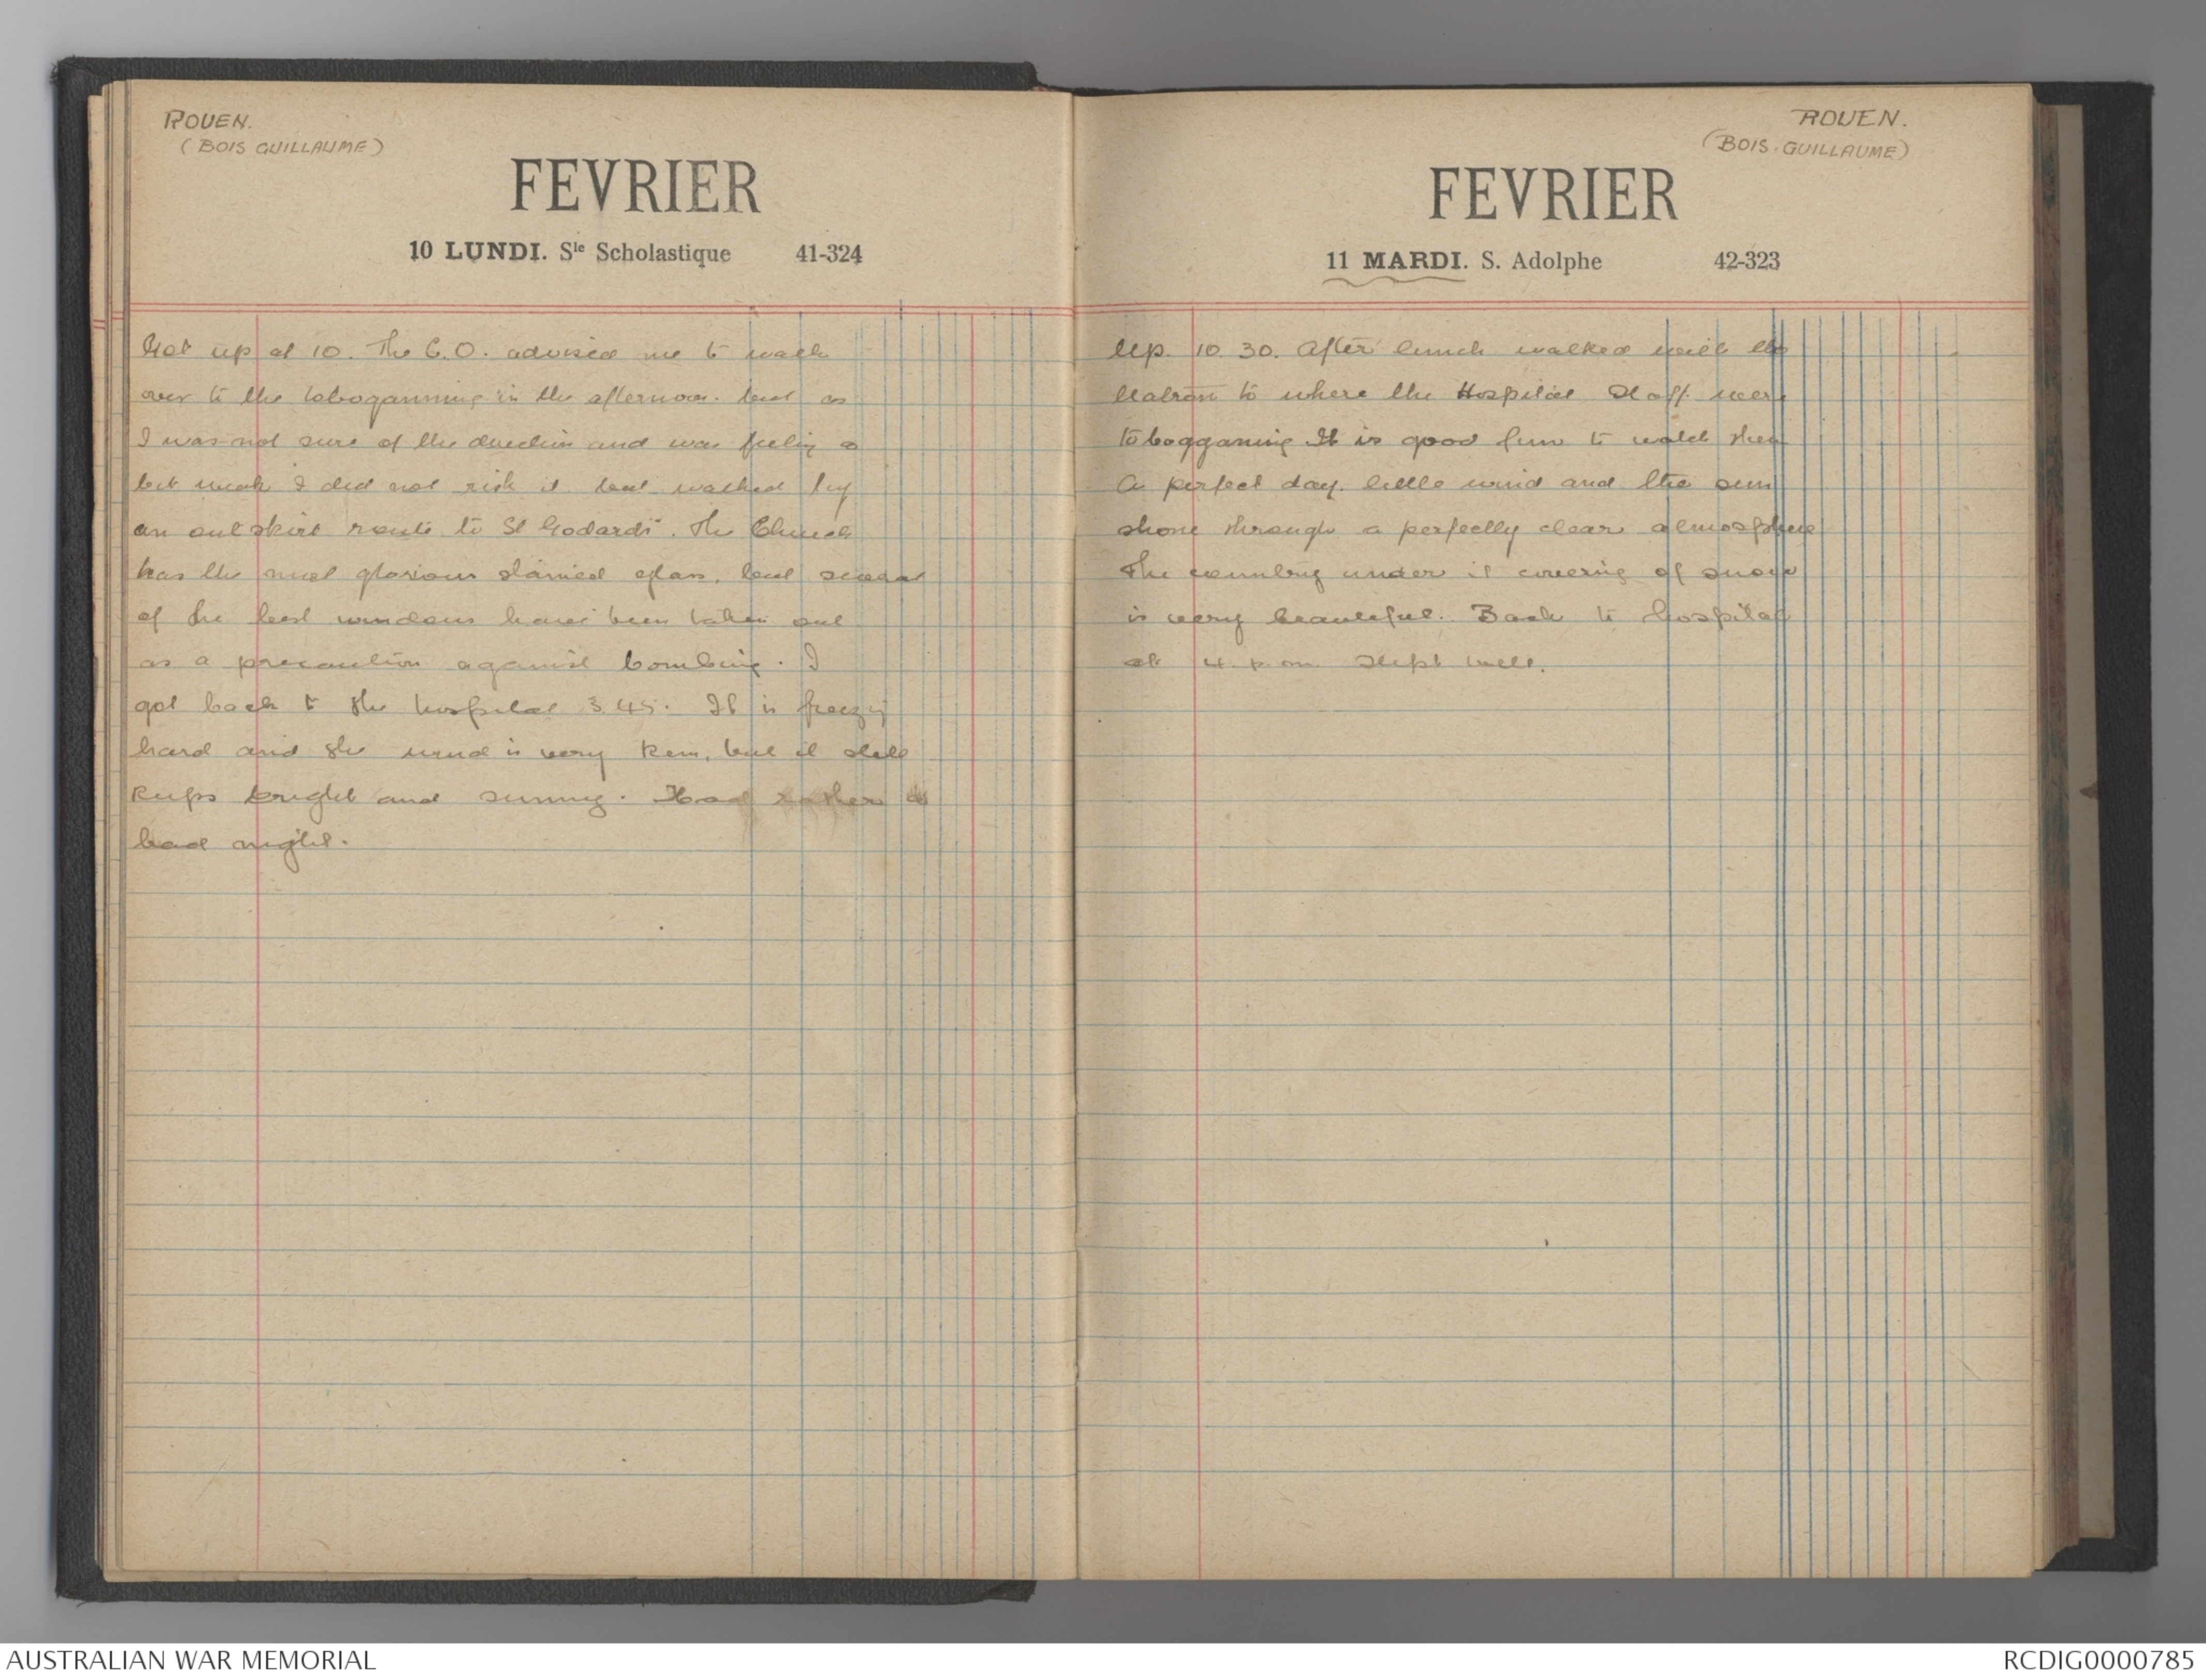 ROUEN.
(BOIS GUILLAUME)
FEVRIER
10 LUNDI. Ste Scholastique 41-324
Got up at 10. The C.O. advised me to walk
over to the toboganning in the afternoon. but as
I was not sure of the direction and was feeling a
bit weak I did not risk it but walked by
an outskirt route to St Godards. The Church
has the most glorious stained glass, but several
of the best windows have been taken out
as a precaution against bombing. I
got back to the hospital 3.45. It is freezing
hard and the wind is very keen, but it still
keeps bright and sunny. Had rather a
bad night.
ROUEN.
(BOIS-GUILLAUME)
FEVRIER
11 MARDI. S. Adolphe 42-323
Up. 10.30. After lunch walked with the
Matron to where the Hospital Staff were
tobogganing It is good fun to watch them
A perfect day. little wind and the sun
shone through a perfectly clear atmosphere
The country under it covering of snow
is very beautiful. Back to hospital
at 4. p.m. Slept well.
AUSTRALIAN WAR MEMORIAL
RCDIG0000785